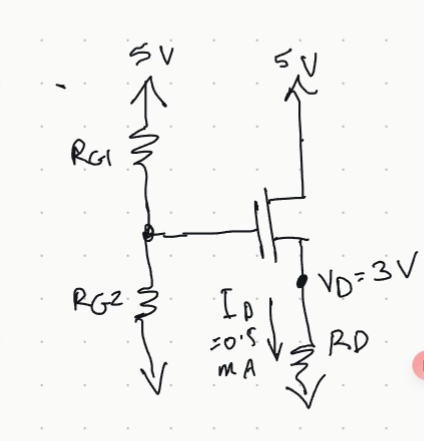 5V
5V
RG1
RG2
VD=3V
ID
=0.5
mA
RD